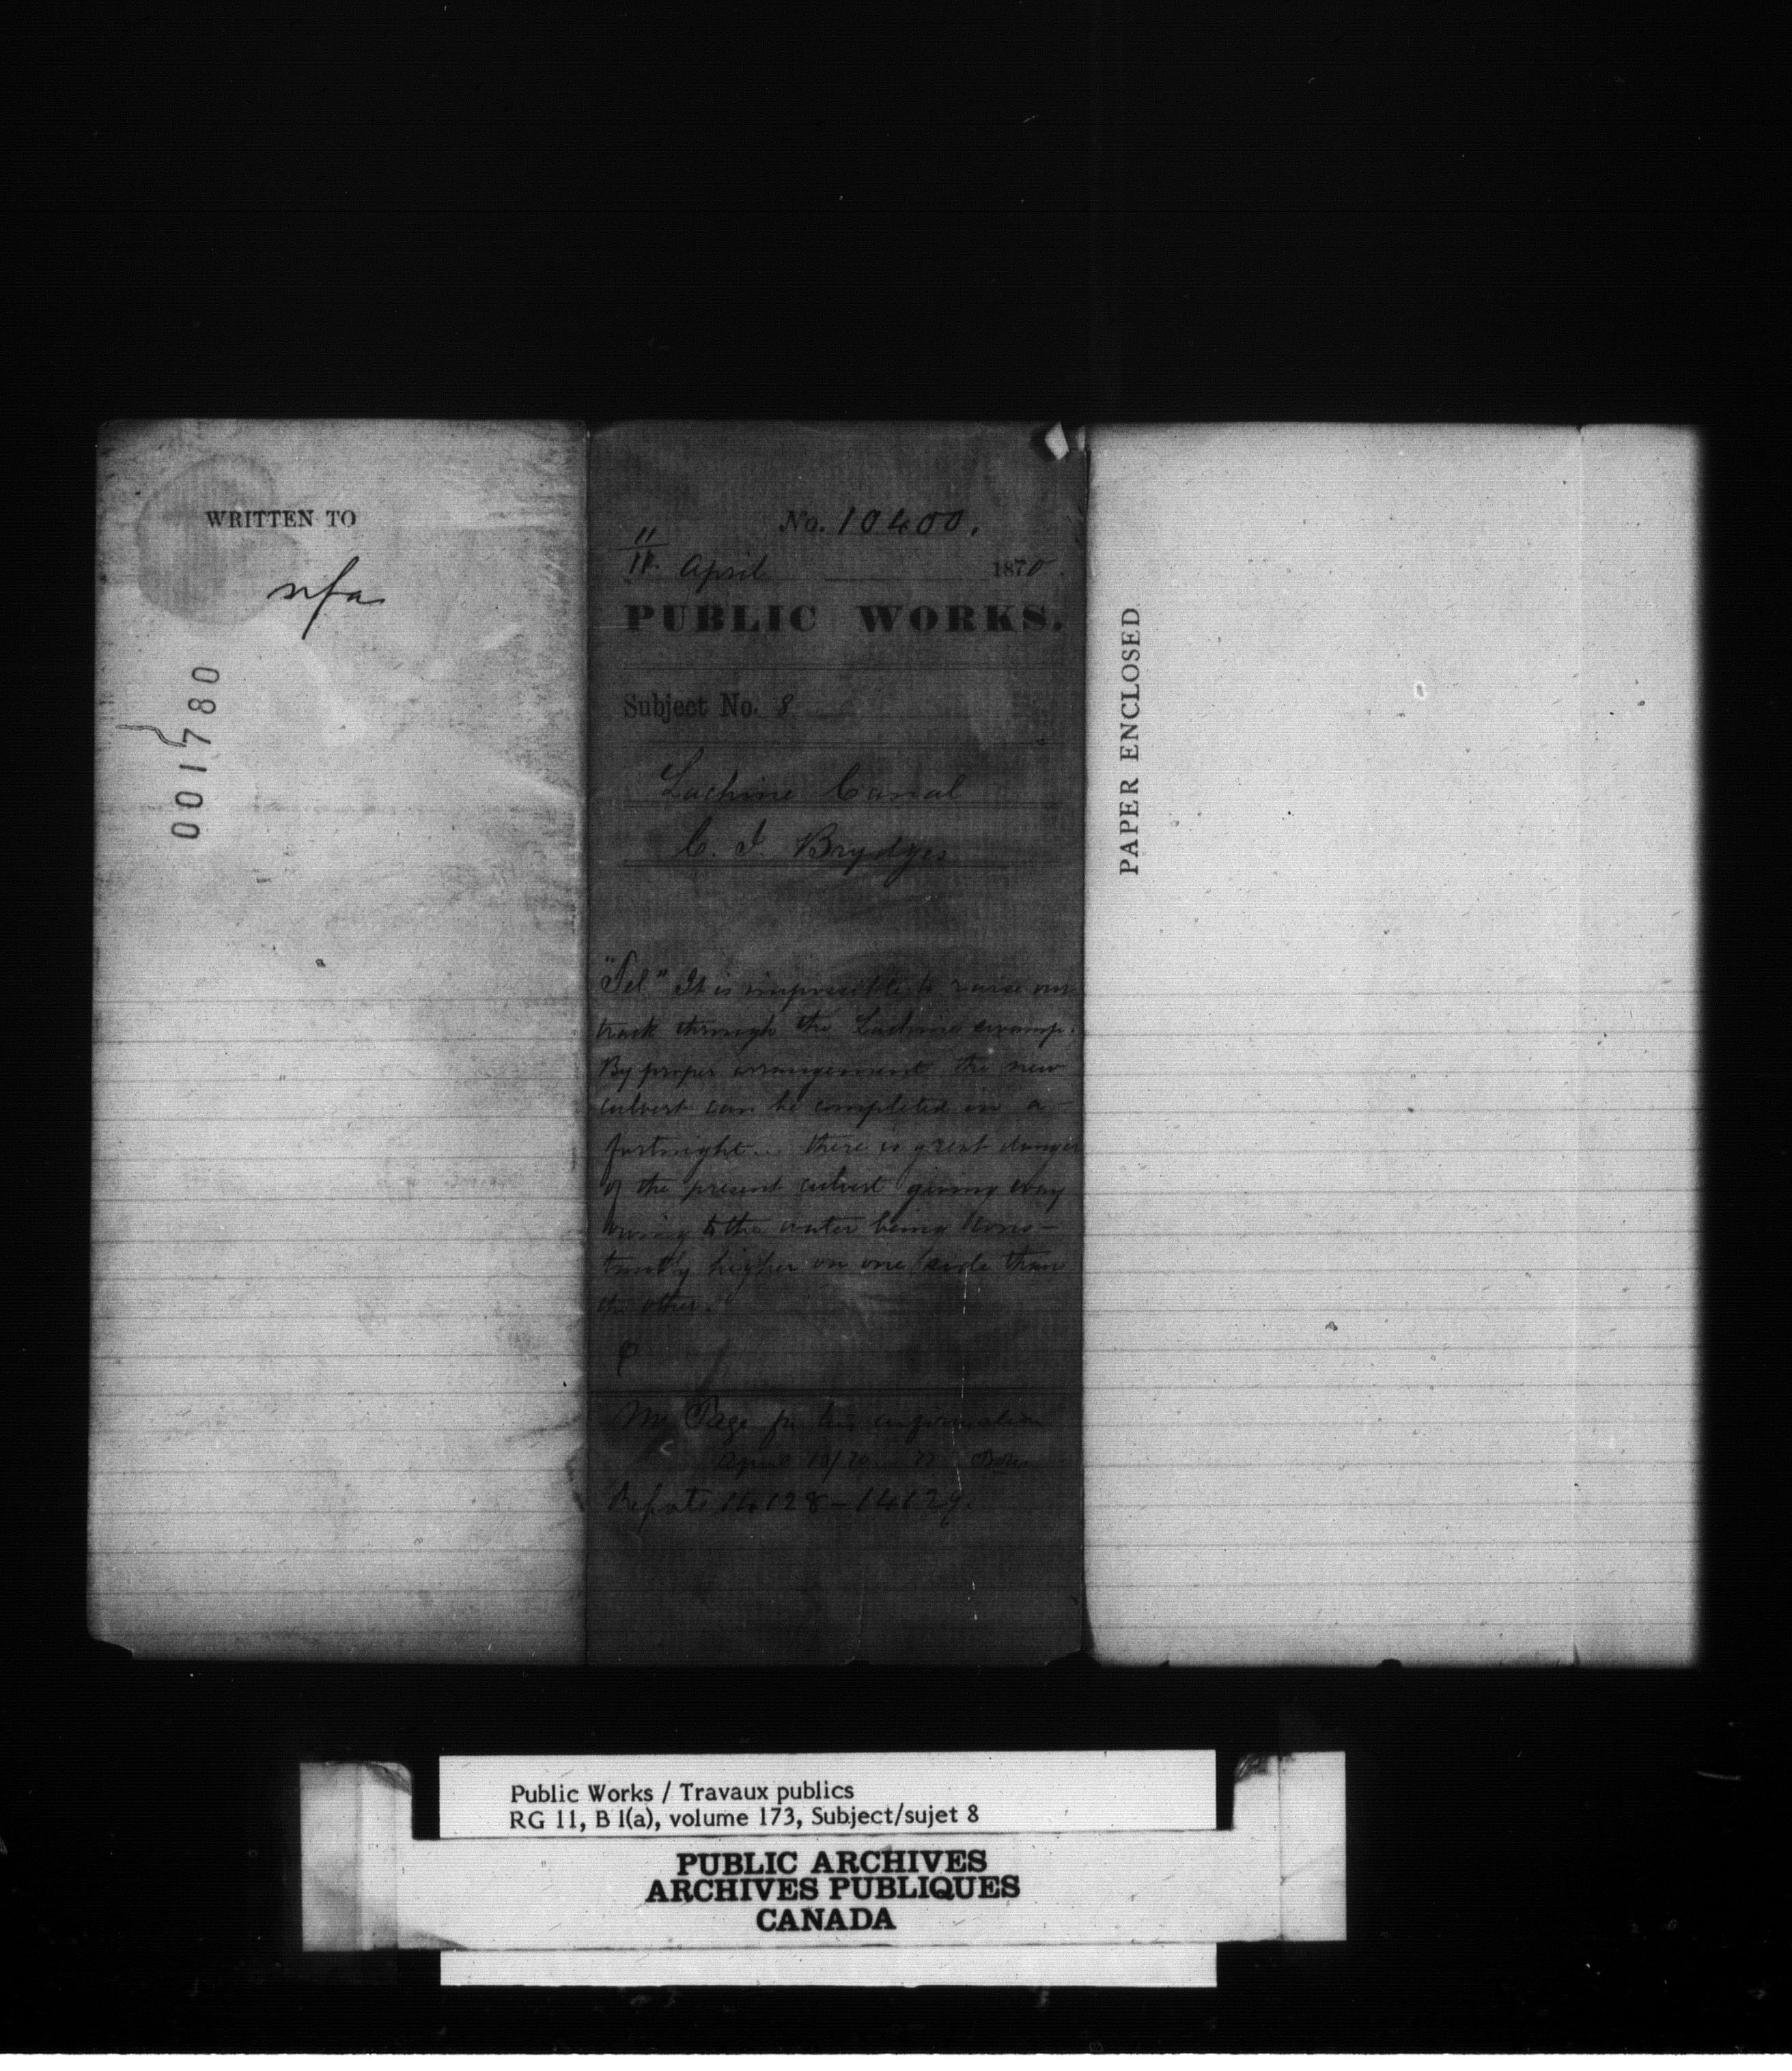 WRITTEN TO
nfa
001780
No. 10400.
11
11 April 1870.
PUBLIC WORKS.
Subject No. 8
Lachine Canal
C. J. Brydges
"Tel" It is impossible to raise our
track through the Lachine swamp.
By proper arrangement the new
culvert can be completed in a
fortnight... there is great danger
of the present culvert giving way
owing to the water being cons-
tantly higher on one side than
the other.
P
Mr Page for his information
April 13/70
Reports 14128-14129.
PAPER ENCLOSED
Public Works / Travaux publics
RG 11, B 1(a), volume 173, Subject/sujet 8
PUBLIC ARCHIVES
ARCHIVES PUBLIQUES
CANADA